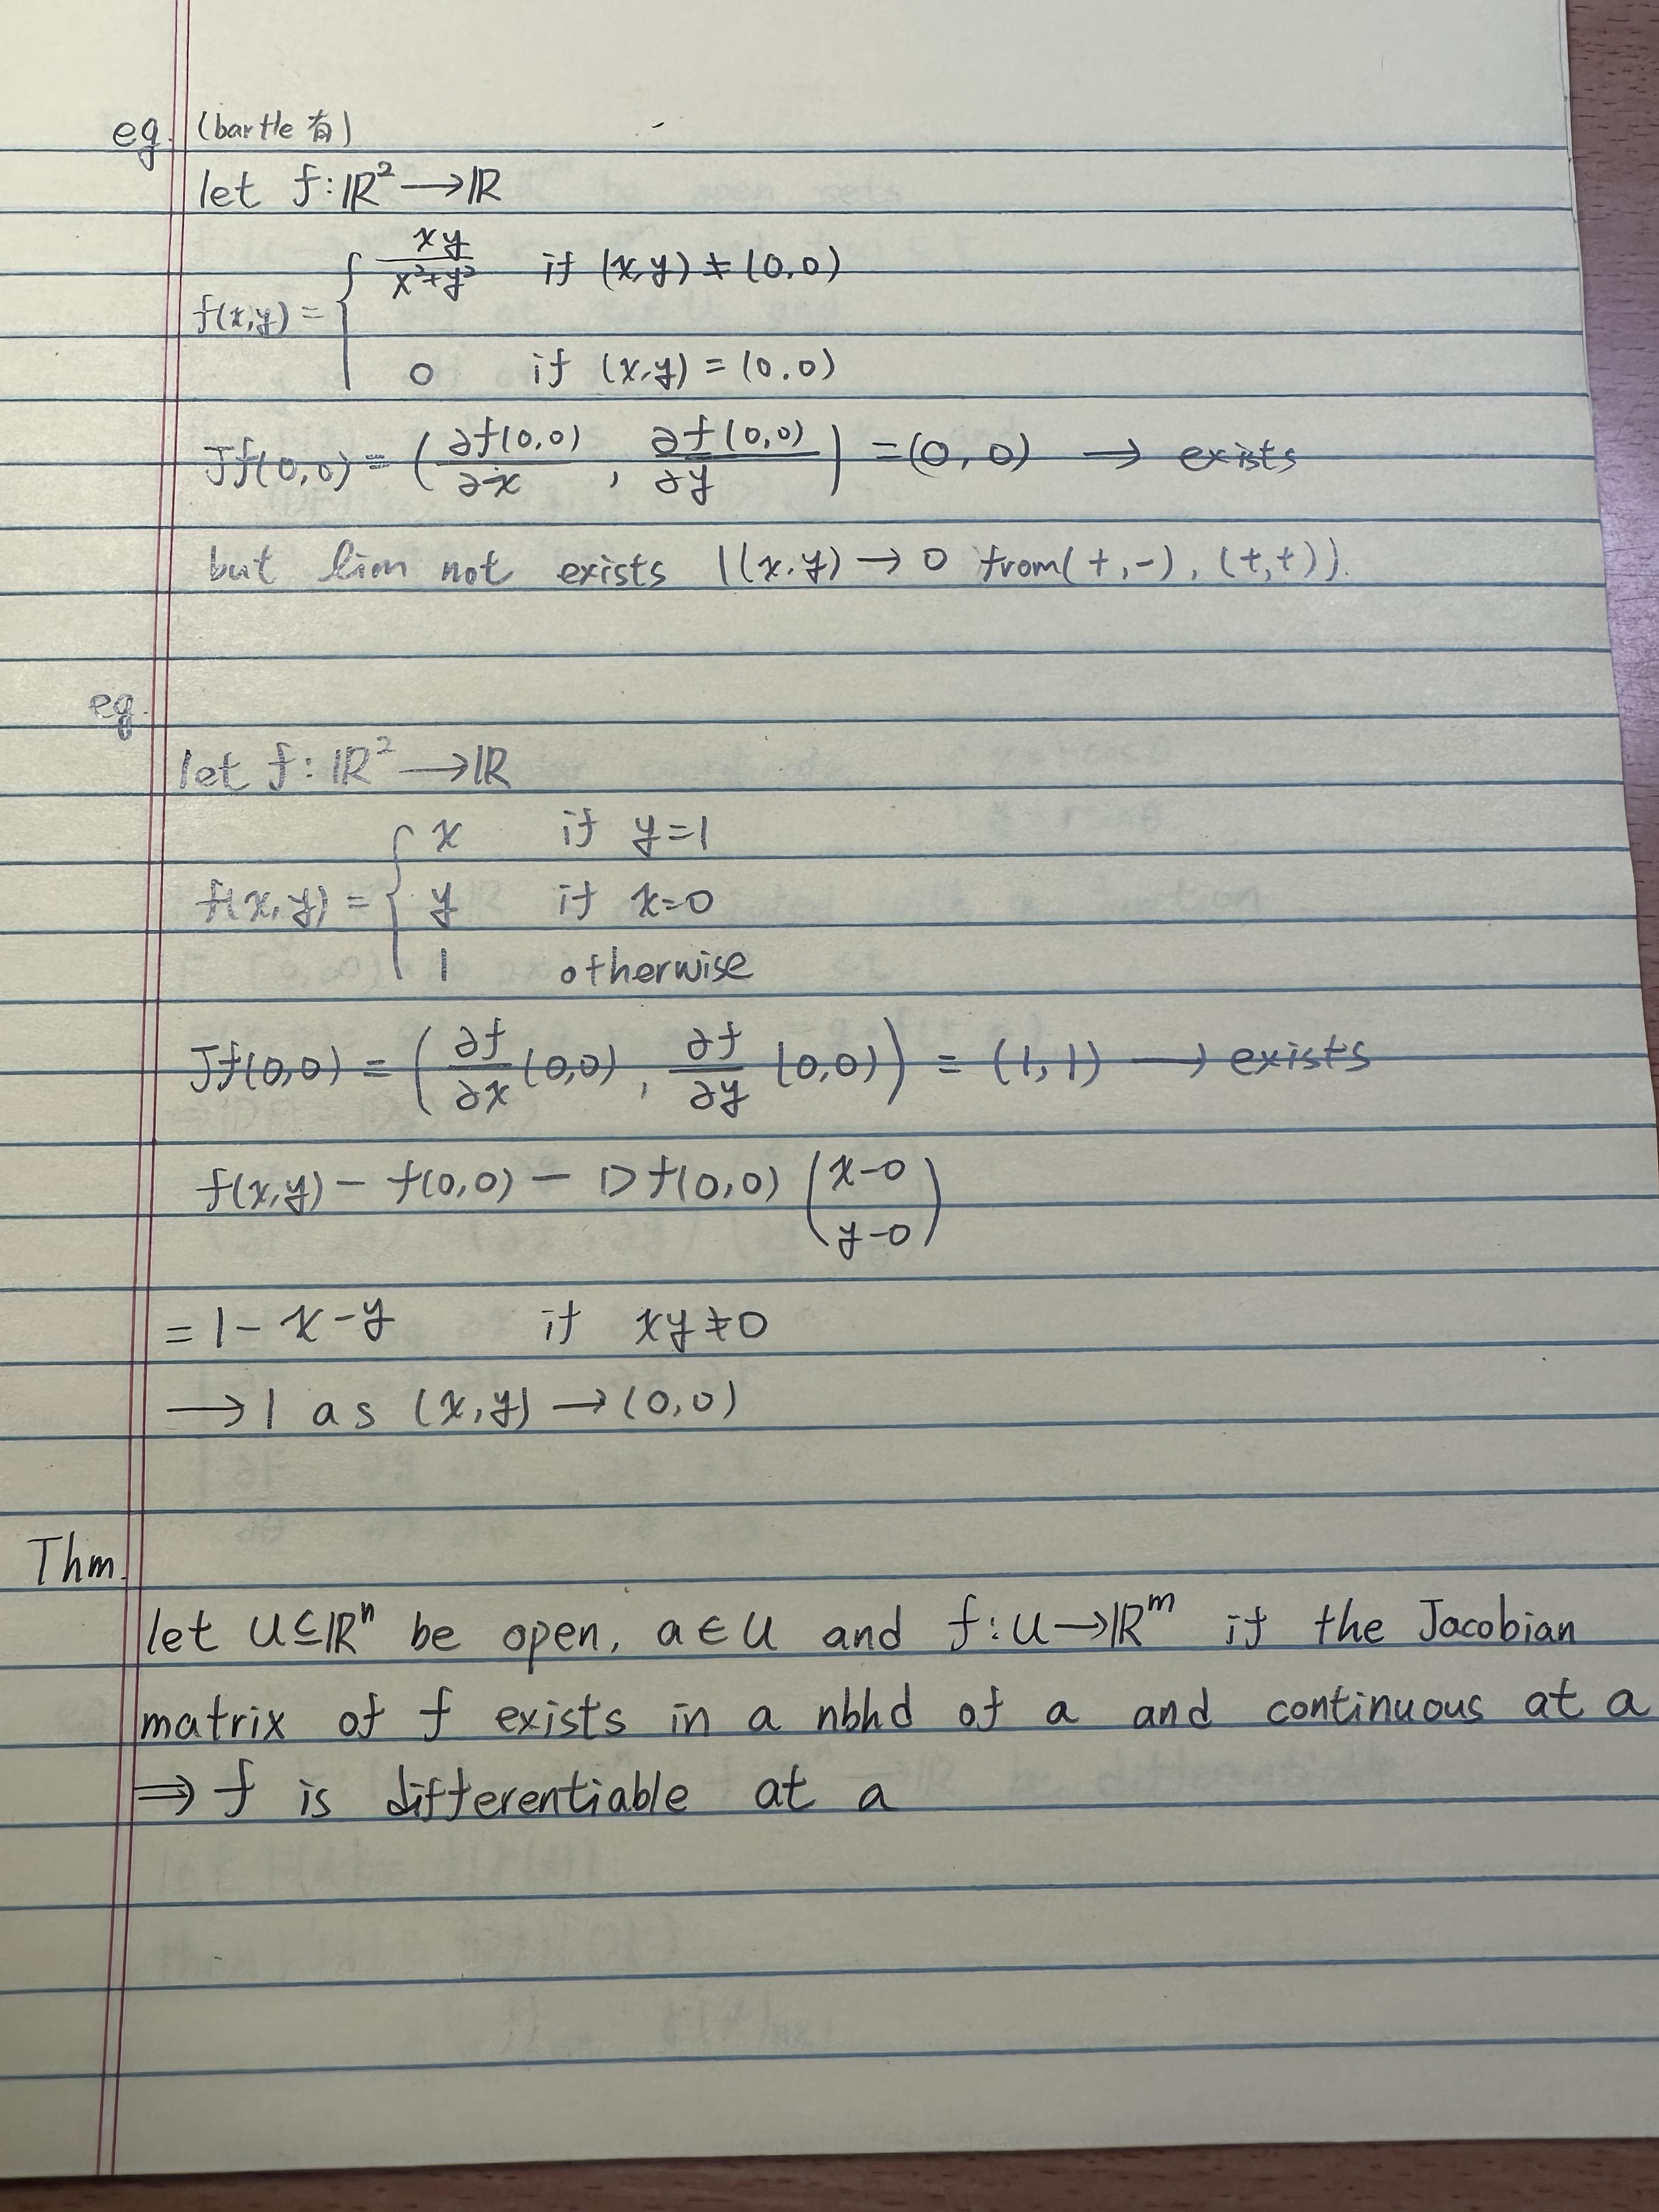 eg. (bartle 有)
let f: ℝ² → ℝ
f(x,y) = { xy/(x²+y²) if (x,y) ≠ (0,0)
0 if (x,y) = (0,0)
Jf(0,0) = (∂f(0,0)/∂x , ∂f(0,0)/∂y) = (0,0) → exists
but lim not exists ((x,y) → 0 from (+,-), (+,+)).
eg.
let f: ℝ² → ℝ
f(x,y) = { x if y=1
y if x=0
1 otherwise
Jf(0,0) = (∂f/∂x (0,0), ∂f/∂y (0,0)) = (1,1) → exists
f(x,y) - f(0,0) - Df(0,0) (x-0
y-0)
= 1 - x - y if xy ≠ 0
→ 1 as (x,y) → (0,0)
Thm.
let U ⊆ ℝⁿ be open, a ∈ U and f: U → ℝᵐ if the Jacobian
matrix of f exists in a nbhd of a and continuous at a
⇒ f is differentiable at a